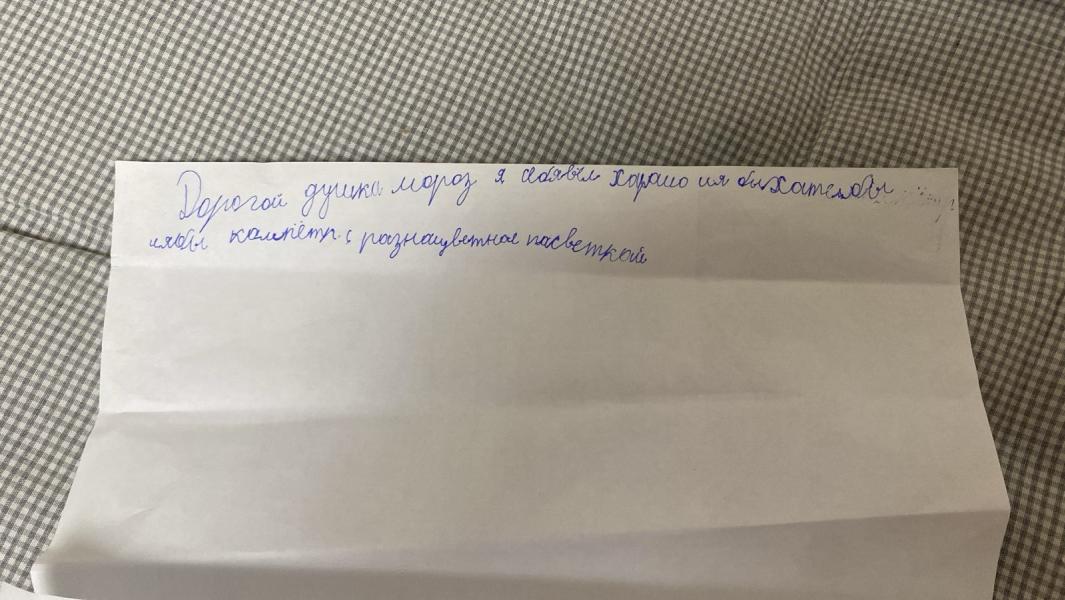 Дорогой душка мороз я себявёл хорошо ия быхателбы
иябы кампётр с разнацветное пасветкой